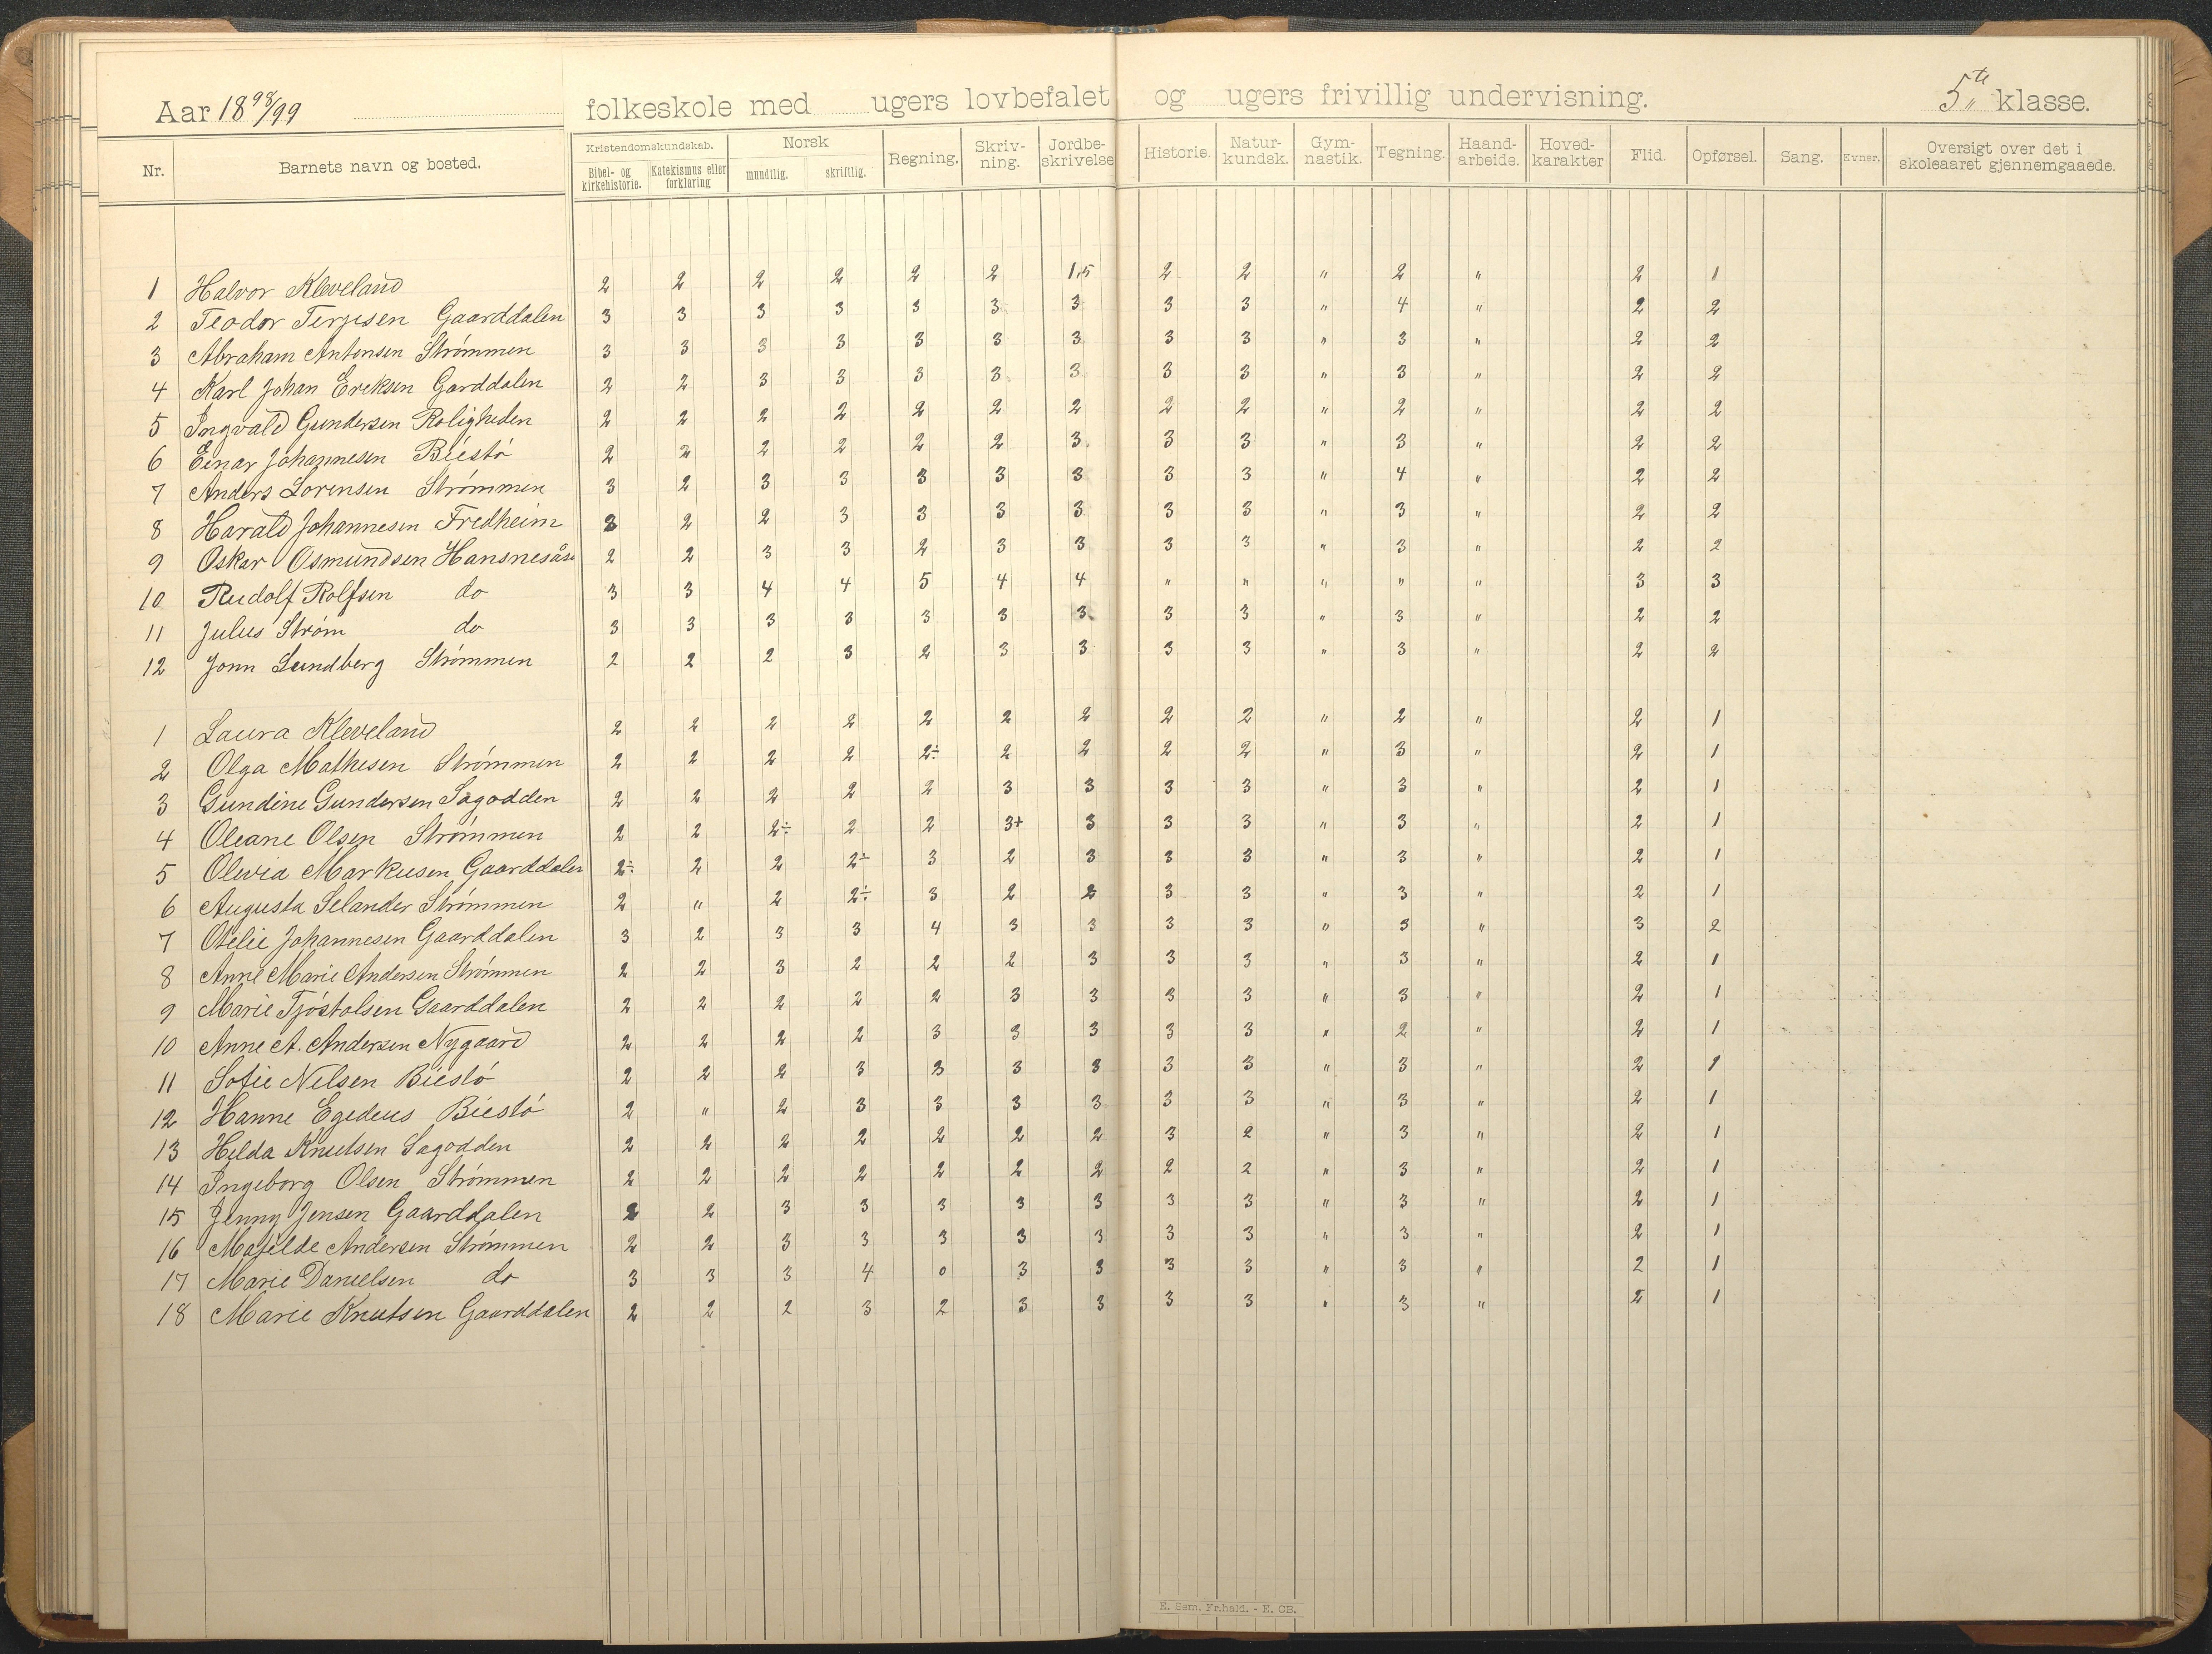 Aar 18 98/99 folkeskole med ugers lovbefalet og ugers frivillig undervisning. 5te klasse.
Nr. Barnets navn og bosted. Kristendomskundskab. Bibel- og kirkehistorie. Katekismus eller forklaring Norsk mundtlig. skriftlig. Regning. Skriv-ning. Jordbe-skrivelse Historie. Natur-kundsk. Gym-nastik. Tegning. Haand-arbeide. Hoved-karakter Flid. Opførsel. Sang. Evner. Oversigt over det i skoleaaret gjennemgaaede.
1 Halvor Kleveland 2 2 2 2 2 2 1,5 2 2 " 2 " 2 1
2 Teodor Terjesen Gaarddalen 3 3 3 3 3 3 3 3 3 " 4 " 2 2
3 Abraham Antonsen Strømmen 3 3 3 3 3 3 3 3 3 " 3 " 2 2
4 Karl Johan Ereksen Garddalen 2 2 3 3 3 3 3 3 3 " 3 " 2 2
5 Ingvald Gundersen Roligheden 2 2 2 2 2 2 2 2 2 " 2 " 2 2
6 Einar Johannesen Biestø 2 2 2 2 2 2 3 3 3 " 3 " 2 2
7 Anders Lorensen Strømmen 3 2 3 3 3 3 3 3 3 " 4 " 2 2
8 Harald Johannesen Fredheim 3 2 2 3 3 3 3 3 3 " 3 " 2 2
9 Oskar Osmundsen Hansnesås 2 2 3 3 2 3 3 3 3 " 3 " 2 2
10 Rudolf Rolfsen do 3 3 4 4 5 4 4 " " " " " 3 3
11 Julius Strøm do 3 3 3 3 3 3 3 3 3 " 3 " 2 2
12 Jonn Lundberg Strømmen 2 2 2 3 2 3 3 3 3 " 3 " 2 2
1 Laura Kleveland 2 2 2 2 2 2 2 2 2 " 2 " 2 1
2 Olga Mathesen Strømmen 2 2 2 2 2÷ 2 2 2 2 " 3 " 2 1
3 Gundine Gundersen Sagodden 2 2 2 2 2 3 3 3 3 " 3 " 2 1
4 Oleane Olsen Strømmen 2 2 2÷ 2 2 3+ 3 3 3 " 3 " 2 1
5 Olevia Markusen Gaarddalen 2÷ 2 2 2÷ 3 2 3 3 3 " 3 " 2 1
6 Augusta Selander Strømmen 2 " 2 2÷ 3 2 2 3 3 " 3 " 2 1
7 Otelie Johannesen Gaarddalen 3 2 3 3 4 3 3 3 3 " 3 " 3 2
8 Anne Marie Andersen Strømmen 2 2 3 2 2 2 3 3 3 " 3 " 2 1
9 Marie Tjøstolsen Gaarddalen 2 2 2 2 2 3 3 3 3 " 3 " 2 1
10 Anne A. Andersen Nygaard 2 2 2 2 3 3 3 3 3 " 2 " 2 1
11 Sofie Nelsen Biestø 2 2 2 3 3 3 3 3 3 " 3 " 2 1
12 Hanne Egedeus Biestø 2 " 2 3 3 3 3 3 3 " 3 " 2 1
13 Helda Knutsen Sagodden 2 2 2 2 2 2 2 3 2 " 3 " 2 1
14 Ingeborg Olsen Strømmen 2 2 2 2 2 2 2 2 2 " 3 " 2 1
15 Jenny Jensen Gaarddalen 2 2 3 3 3 3 3 3 3 " 3 " 2 1
16 Matelde Andersen Strømmen 2 2 3 3 3 3 3 3 3 " 3 " 2 1
17 Marie Danielsen do 3 3 3 4 0 3 3 3 3 " 3 " 2 1
18 Marie Knutsen Gaarddalen 2 2 2 3 2 3 3 3 3 " 3 " 2 1
E. Sem, Fr.hald. - E. CB.